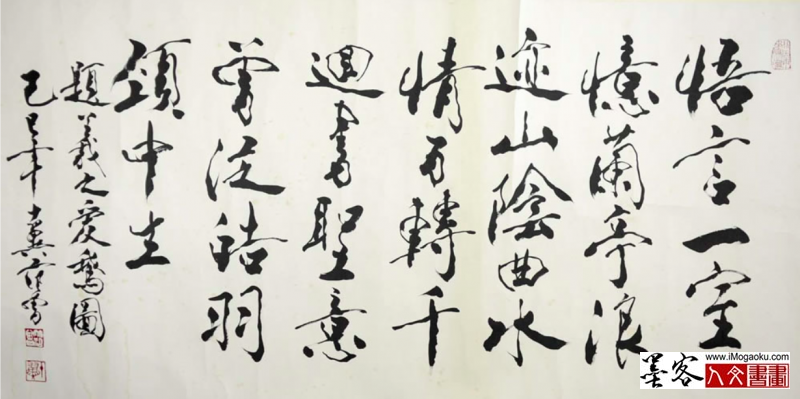 悟言一室
憶蘭亭浪
迹山陰曲水
情百轉千
迴書聖意
曾從皓羽
頸中生
題羲之愛鵝圖
己巳年十翼范曾
墨客
www.iMogaoku.com
人文書畫